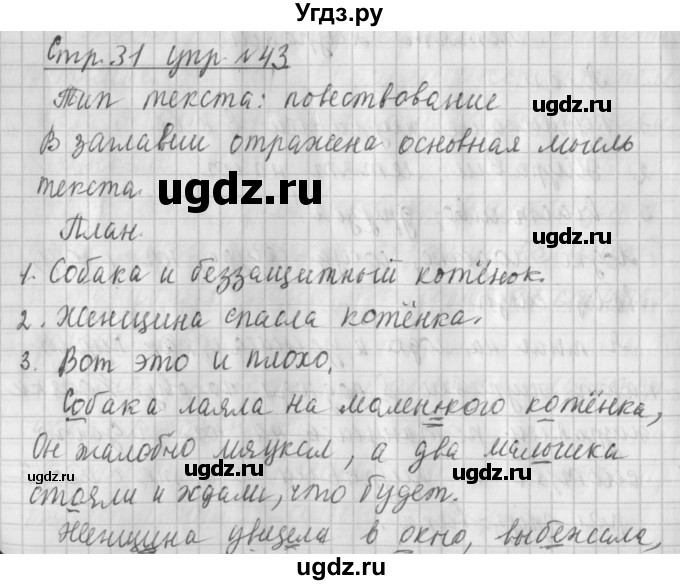 Угдз.ру
Стр.31 упр №43
Тип текста: повествование
ugdz.ru
В заглавии отражена основная мысль
текста.
ugdz.ru
ugdz.ru
План.
1. Собака и беззащитный котёнок.
2. Женщина спасла котёнка.
3. Вот это и плохо.
Собака лаяла на маленького котёнка,
Он жалобно мяукал, а два малышка
ugdz.ru
ugdz.ru
ugdz.ru
стояли и ждали, что будет.
Женщина увидела в окно, выбежала,
ugdz.ru